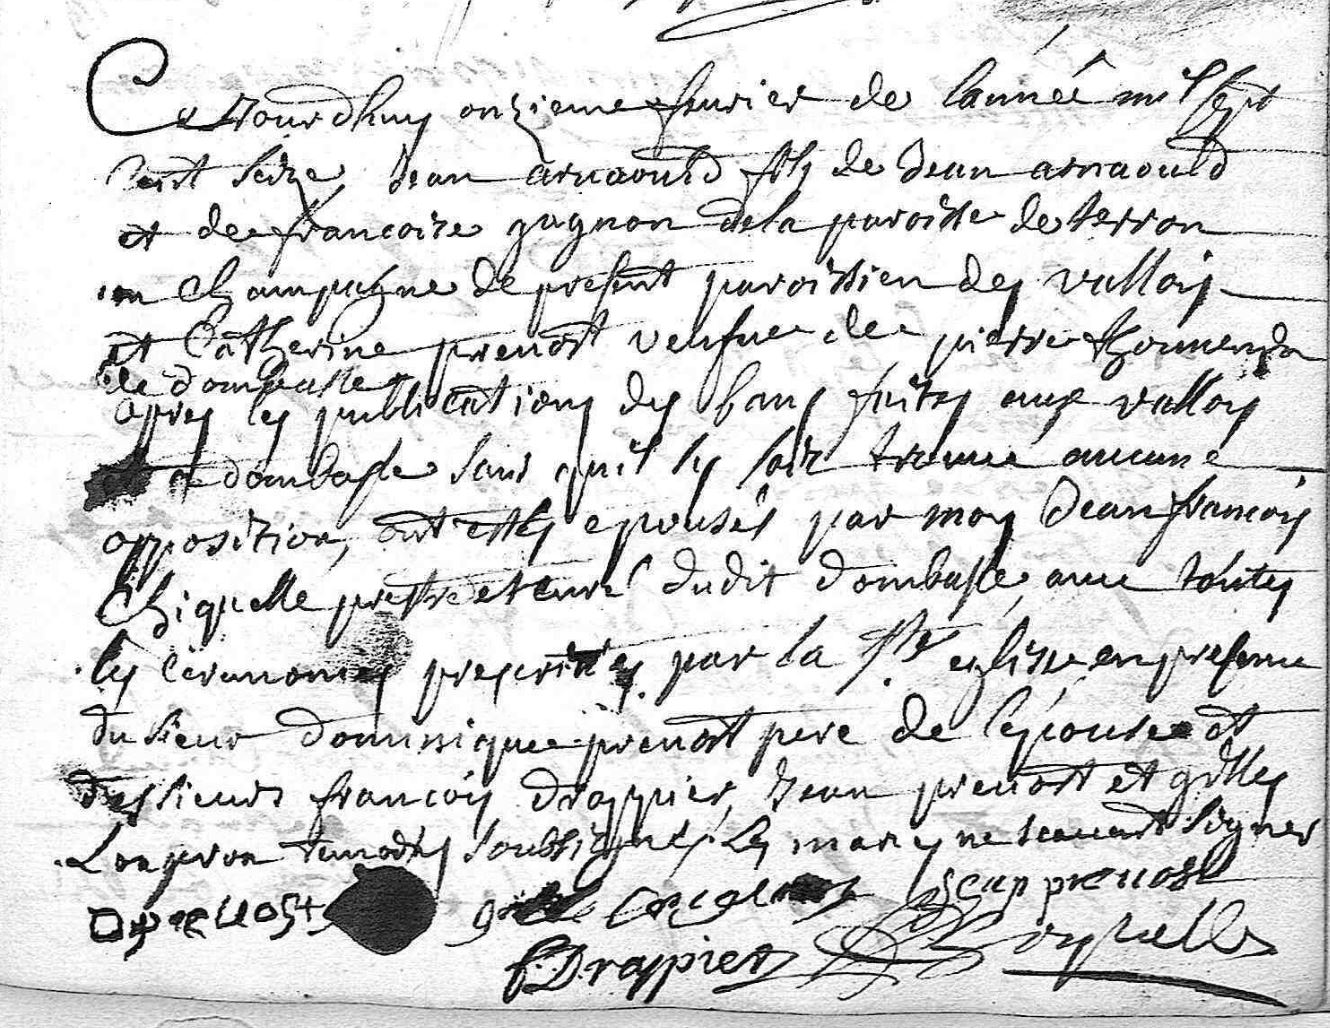 Ce Jourdhuy onzieme fevrier de lannéé mil sept
cent seize, Jean arnaould fils de Jean arnaould
et de francoise gagnon dela paroisse de terron
en champagne de present paroissien des vallois
et Catherine prevost veufve de pierre
de dombasle
apres les publications des bans faites aux vallois
et a dombasle sans quil sy soit trouvé aucune
opposition, ont estes epousés par moy Jean francois
Chiquelle prestre et curé dudit dombasle, avec toutes
les ceremonies prescrittes par la Ste eglisse en presence
du sieur dominique prevost pere de lespouse et
des sieurs francois drappier, Jean prevost et gilles
tesmoins soubsignés les maries ne scavent signer
D prevost gille Jean prevost
f Drappier